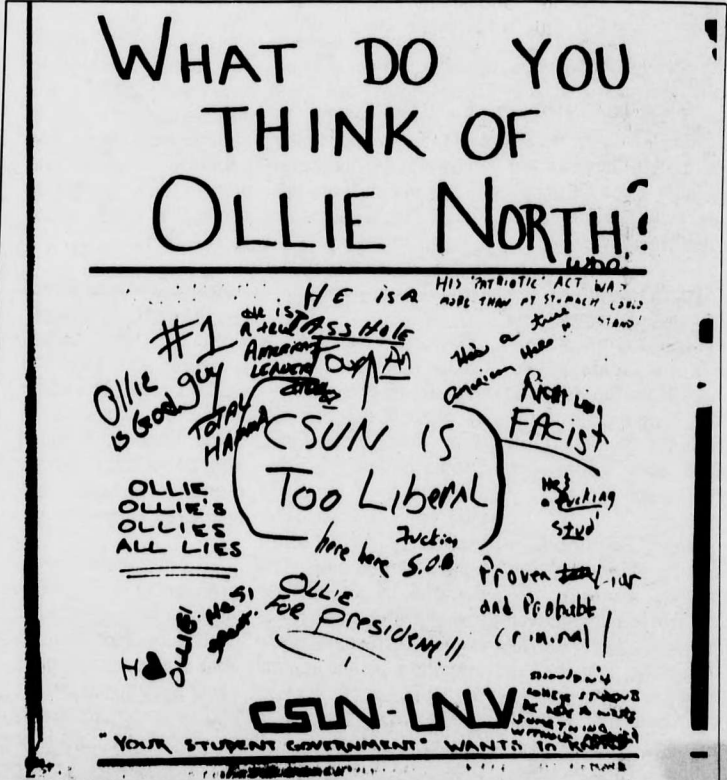 WHAT DO YOU
THINK OF
OLLIE NORTH?
WHO?
HIS "PATRIOTIC" ACT WAS
MORE THAN MY STOMACH COULD
STAND!
HE IS A
ASSHOLE
He is
A true
American
LEADER
#1
Ollie
is Good guy
TOTAL
He's a true
American Hero
Right wing
FAcist
CSUN IS
Too Liberal
here here
Fuckin
S.O.B
He's
a fucking
stud
OLLIE
OLLIE'S
OLLIES
ALL LIES
Proven liar
and Probable
criminal
OLLIE
FOR President!!
OLLIE!
CSUN-UNLV
"YOUR STUDENT GOVERNMENT" WANTS TO